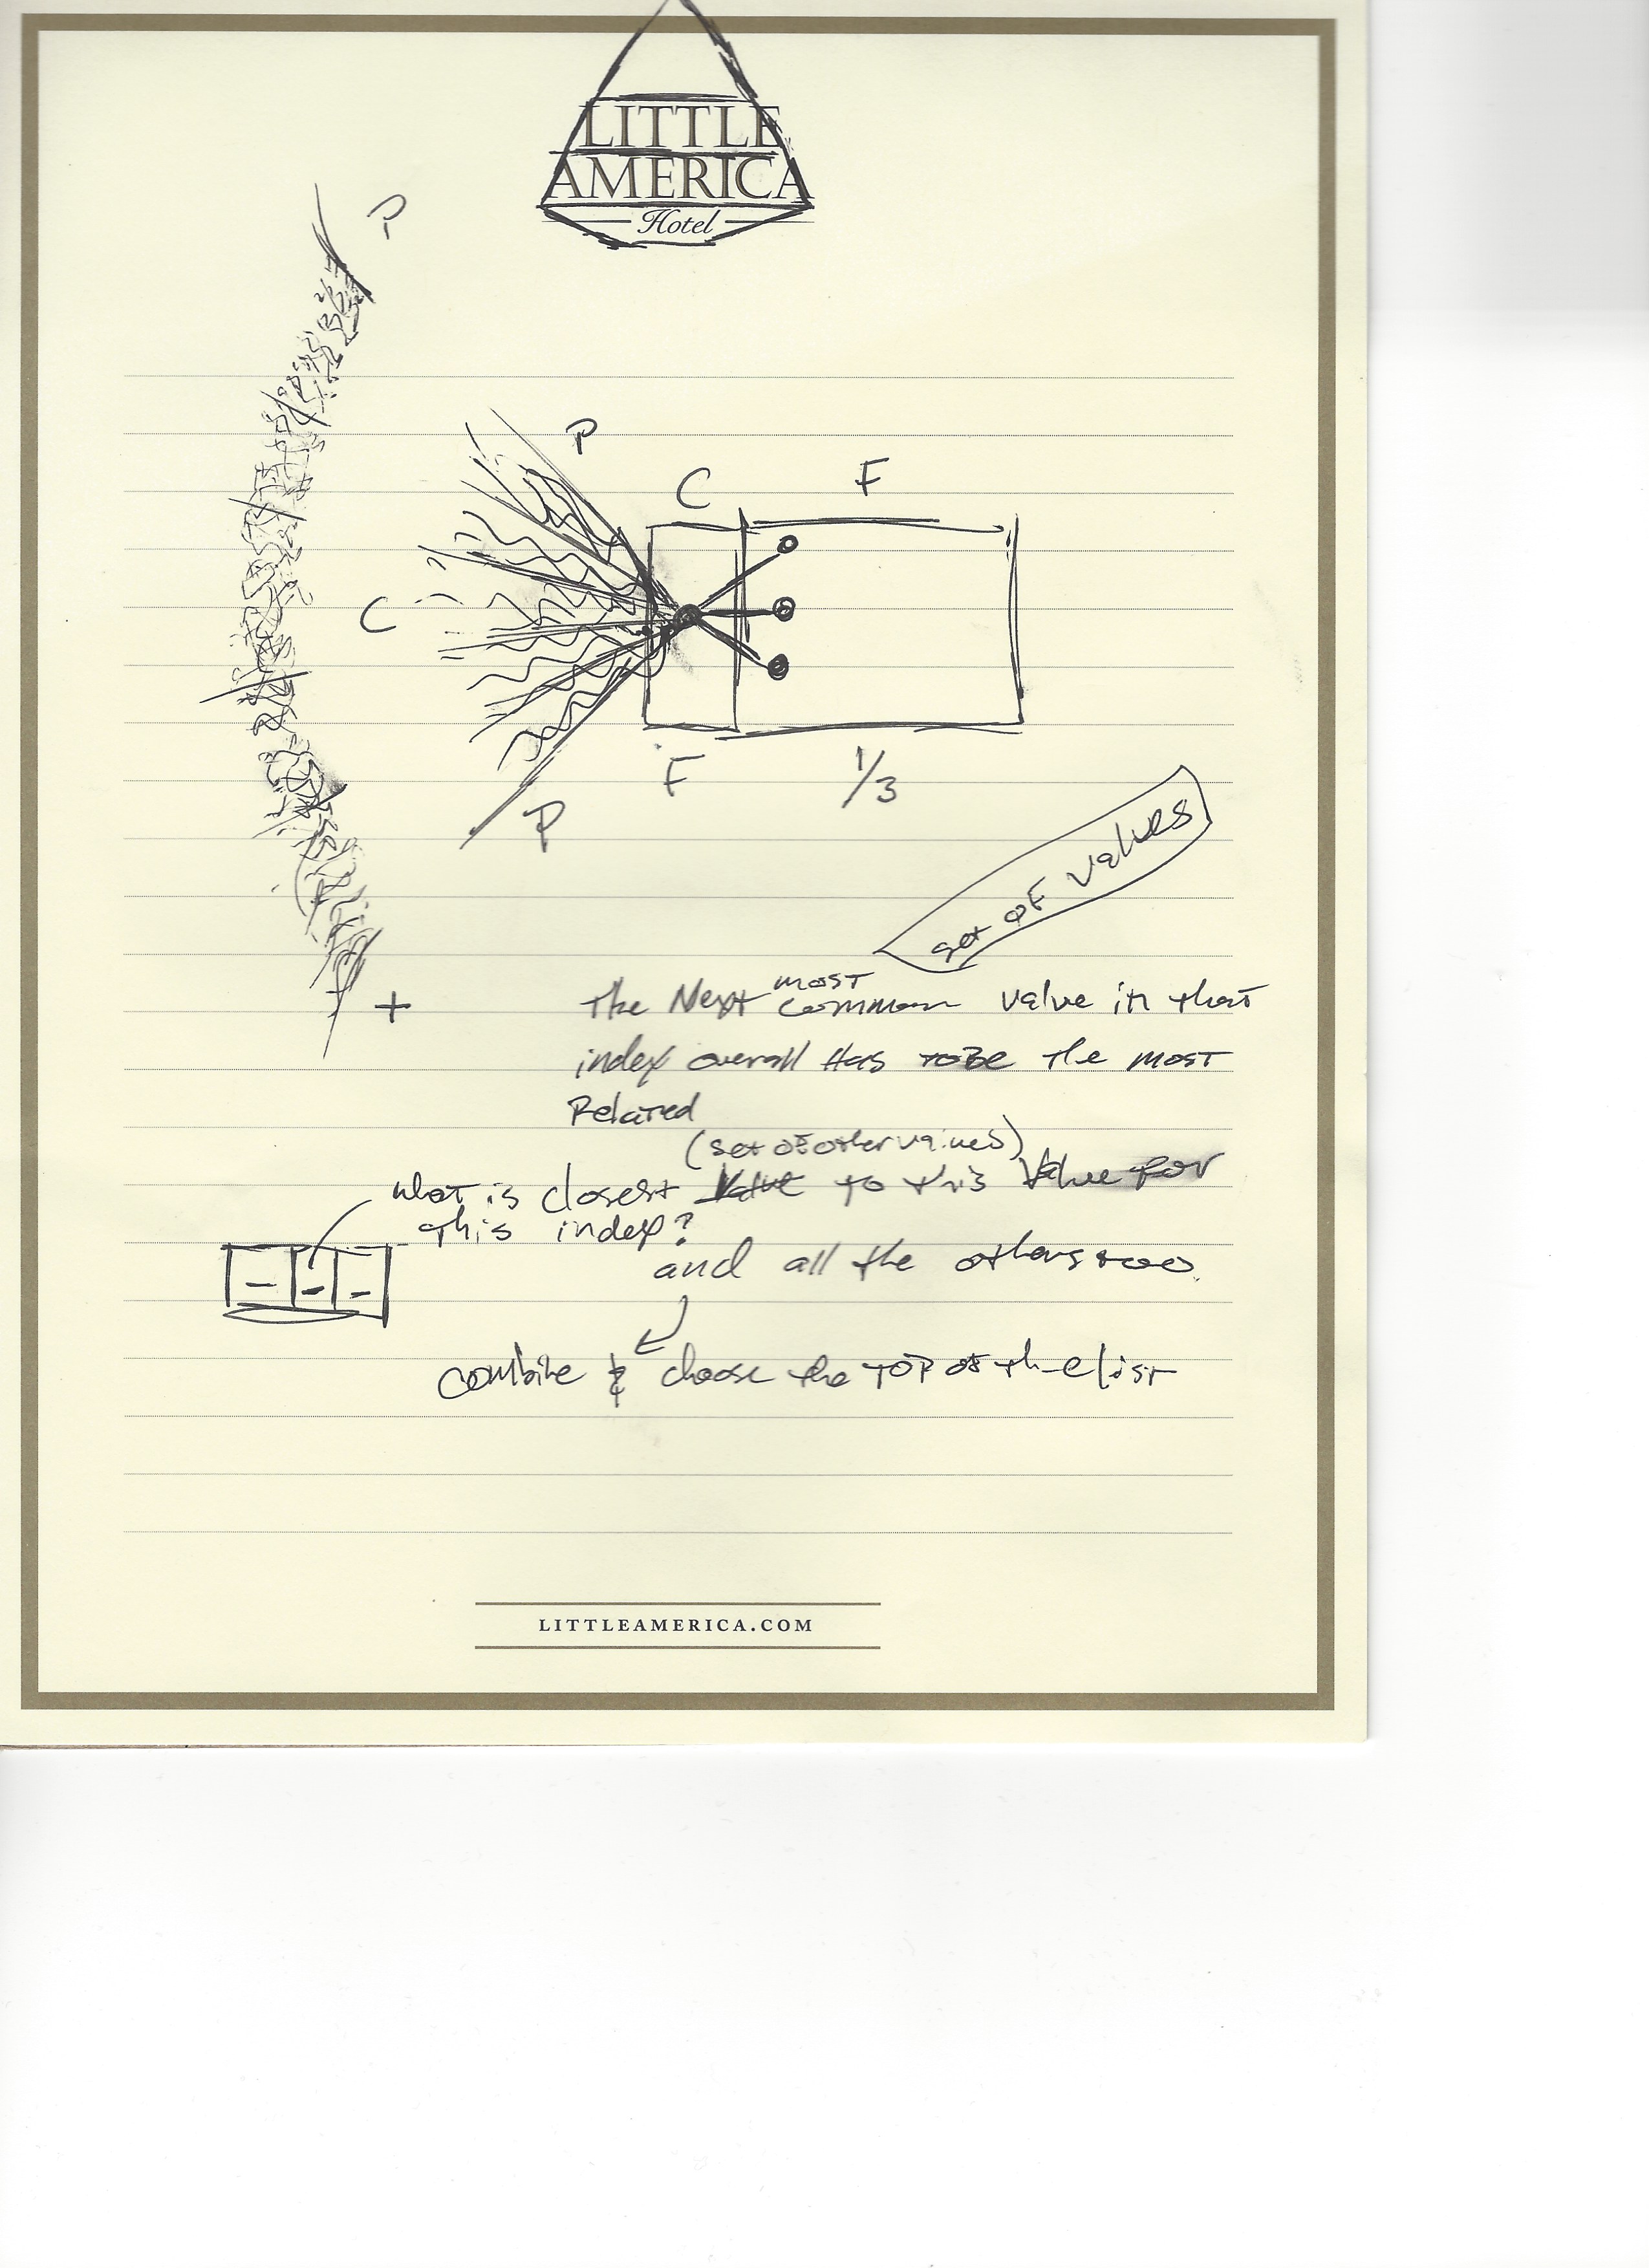 LITTLE
AMERICA
Hotel
P
P
C
F
C
F
1/3
P
set of values
+
most
The Next common value in that
index overall Has to Be the most
Related
(set of other values)
what is closest value to this value for
this index?
and all the others too.
combine & choose the TOP of the list
LITTLEAMERICA.COM